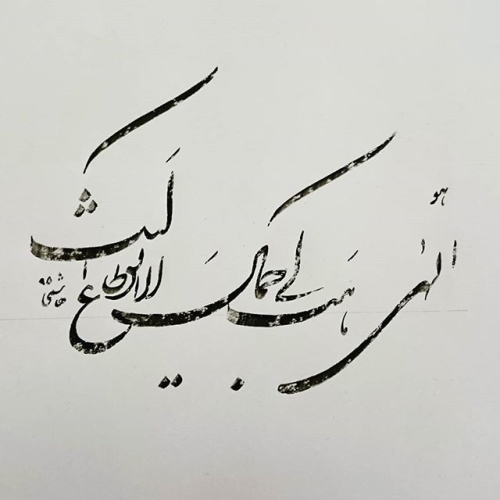 هو
الهی هَب لی کمال الانقطاع اِلَیک